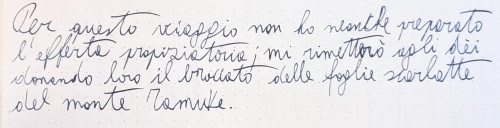 Per questo viaggio non ho neanche preparato
l'offerta propiziatoria; mi rimetterò agli dèi
donando loro il broccato delle foglie scarlatte
del monte Tamuke.